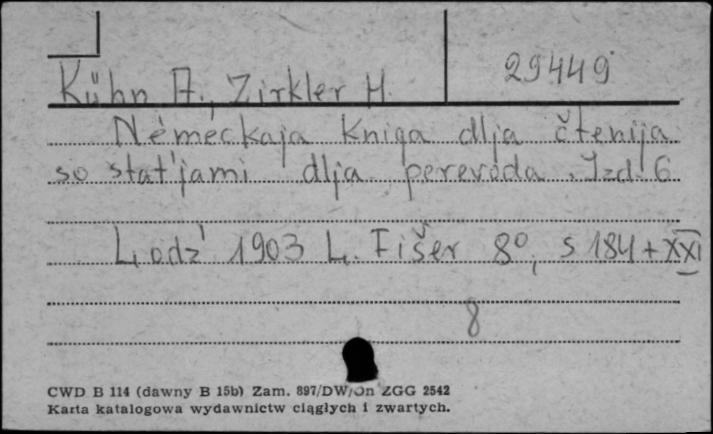 29449
Kühn A., Zirkler H.
Nemeckaja kniga dlja čtenija
so stat'jami dlja perevoda. Izd. 6
Łodź 1903 L. Fišer 8°, s 184 + XXI
8
CWD B 114 (dawny B 15b) Zam. 897/DW/Jn ZGG 2542
Karta katalogowa wydawnictw ciągłych i zwartych.